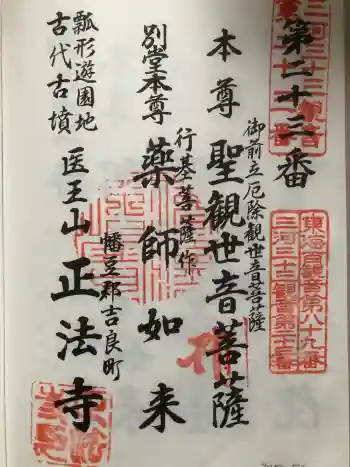 第二十三番
本尊 聖観世音菩薩
御前立厄除観世音菩薩
別堂本尊 薬師如来
行基菩薩作
瓢形遊園地
古代古墳
医王山正法寺
幡豆郡吉良町
東海百観音第八十九番
三河三十三観音第廿三番